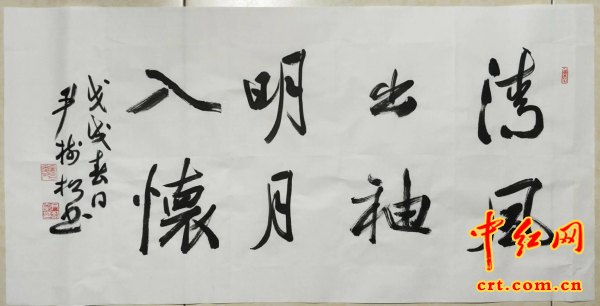 清風
出袖
明月
入懷
戊戌春日
尹樹松书
中红网
crt.com.cn